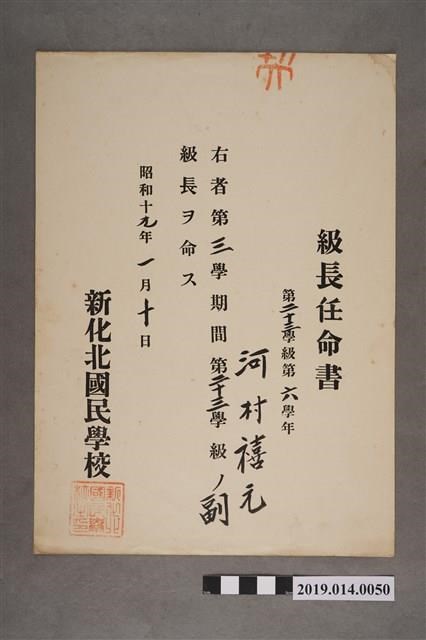 級長任命書
第二十三學級第六學年
河村禧元
右者第三學期間第二十三學級ノ副
級長ヲ命ス
昭和十九年一月十日
新化北國民學校
2019.014.0050